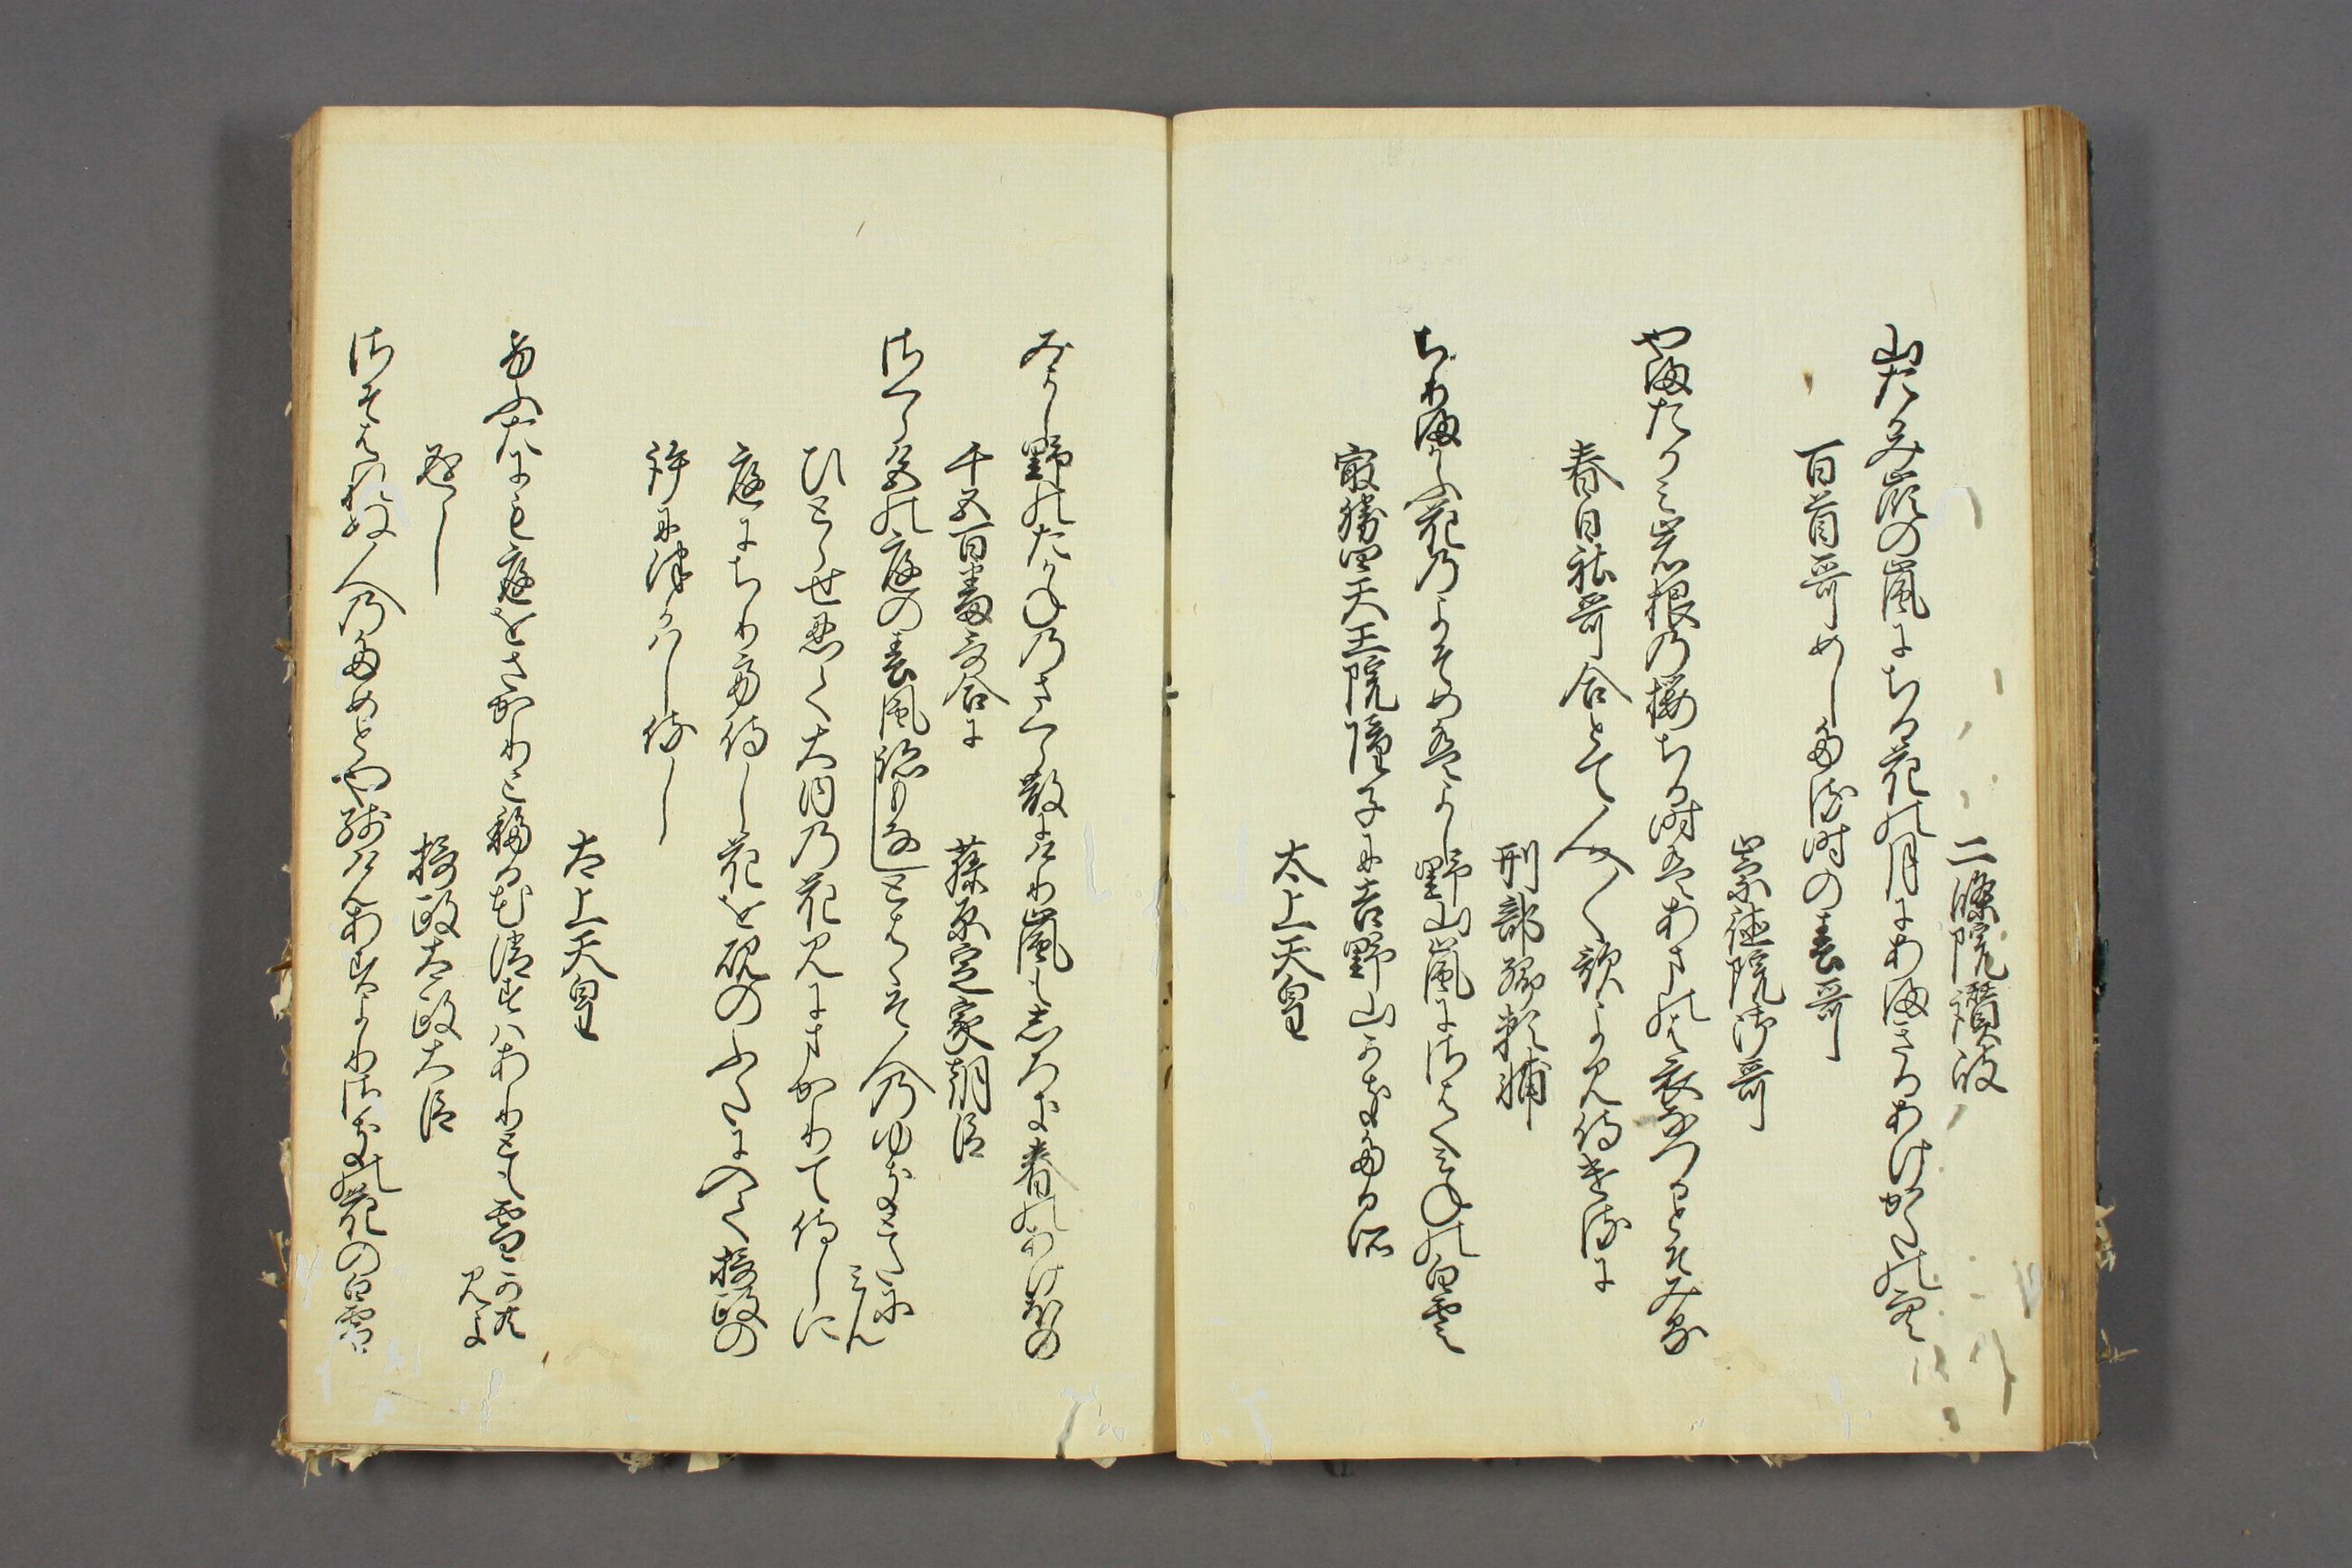 二條院讃岐
山たかみ嶺の嵐にちる花の月にあまきるあけかたの空
百首哥めしける時の春哥
崇徳院御哥
やまたかみ岩根の桜ちる時はあまの羽衣なつるとそみる
春日社哥合とて人々歌よみ侍けるに
刑部卿頼輔
ちりまかふ花のよそめはよし野山嵐にさはくみねの白雲
最勝四天王院障子に吉野山かきたる所
太上天皇
みよし野のたかねのさくら散にけり嵐もしろき春のあけほの
千五百番哥合に
藤原定家朝臣
さくら色の庭の春風跡もなしとはゝそ人のゆきとたに
みん
ひとゝせ忍て大内の花見にまかりて侍しに
庭にちりて侍し花を硯のふたに入て摂政の
許につかはし侍し
太上天皇
けふたにも庭をさかりとうつる花消すはありとも雪かとも
見よ
返し
摂政太政大臣
さそはれぬ人のためとや残けんあすよりさきの花の白雪